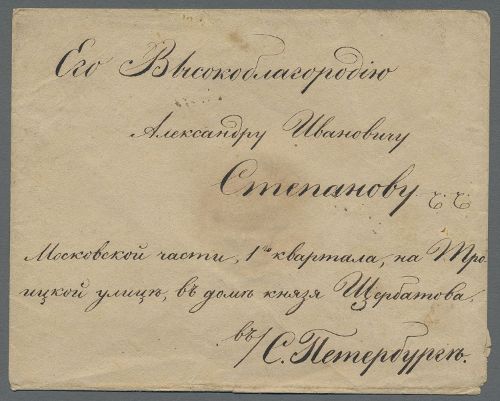 Его Высокоблагородію
Александру Ивановичу
Степанову
Московской части, 1го квартала, на Тро
ицкой улицѣ, въ домѣ князя Щербатова,
въ/ С. Петербургѣ.